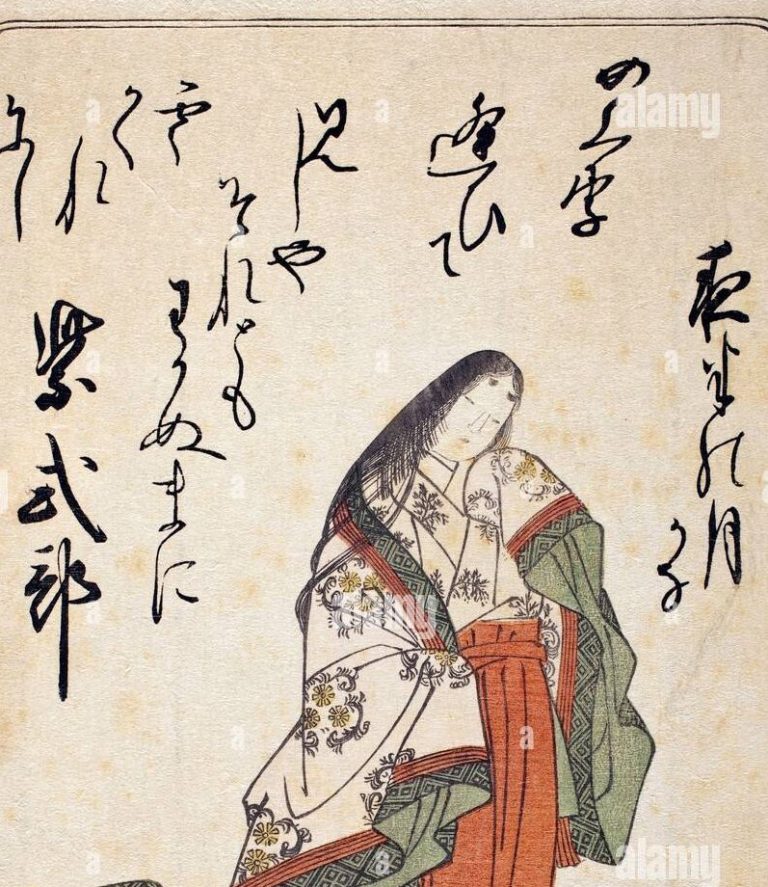 めくり
逢ひて
見しや
それとも
わかぬまに
雲
かくれ
にし
夜半の月
かな
紫式部
alamy
alamy
alamy